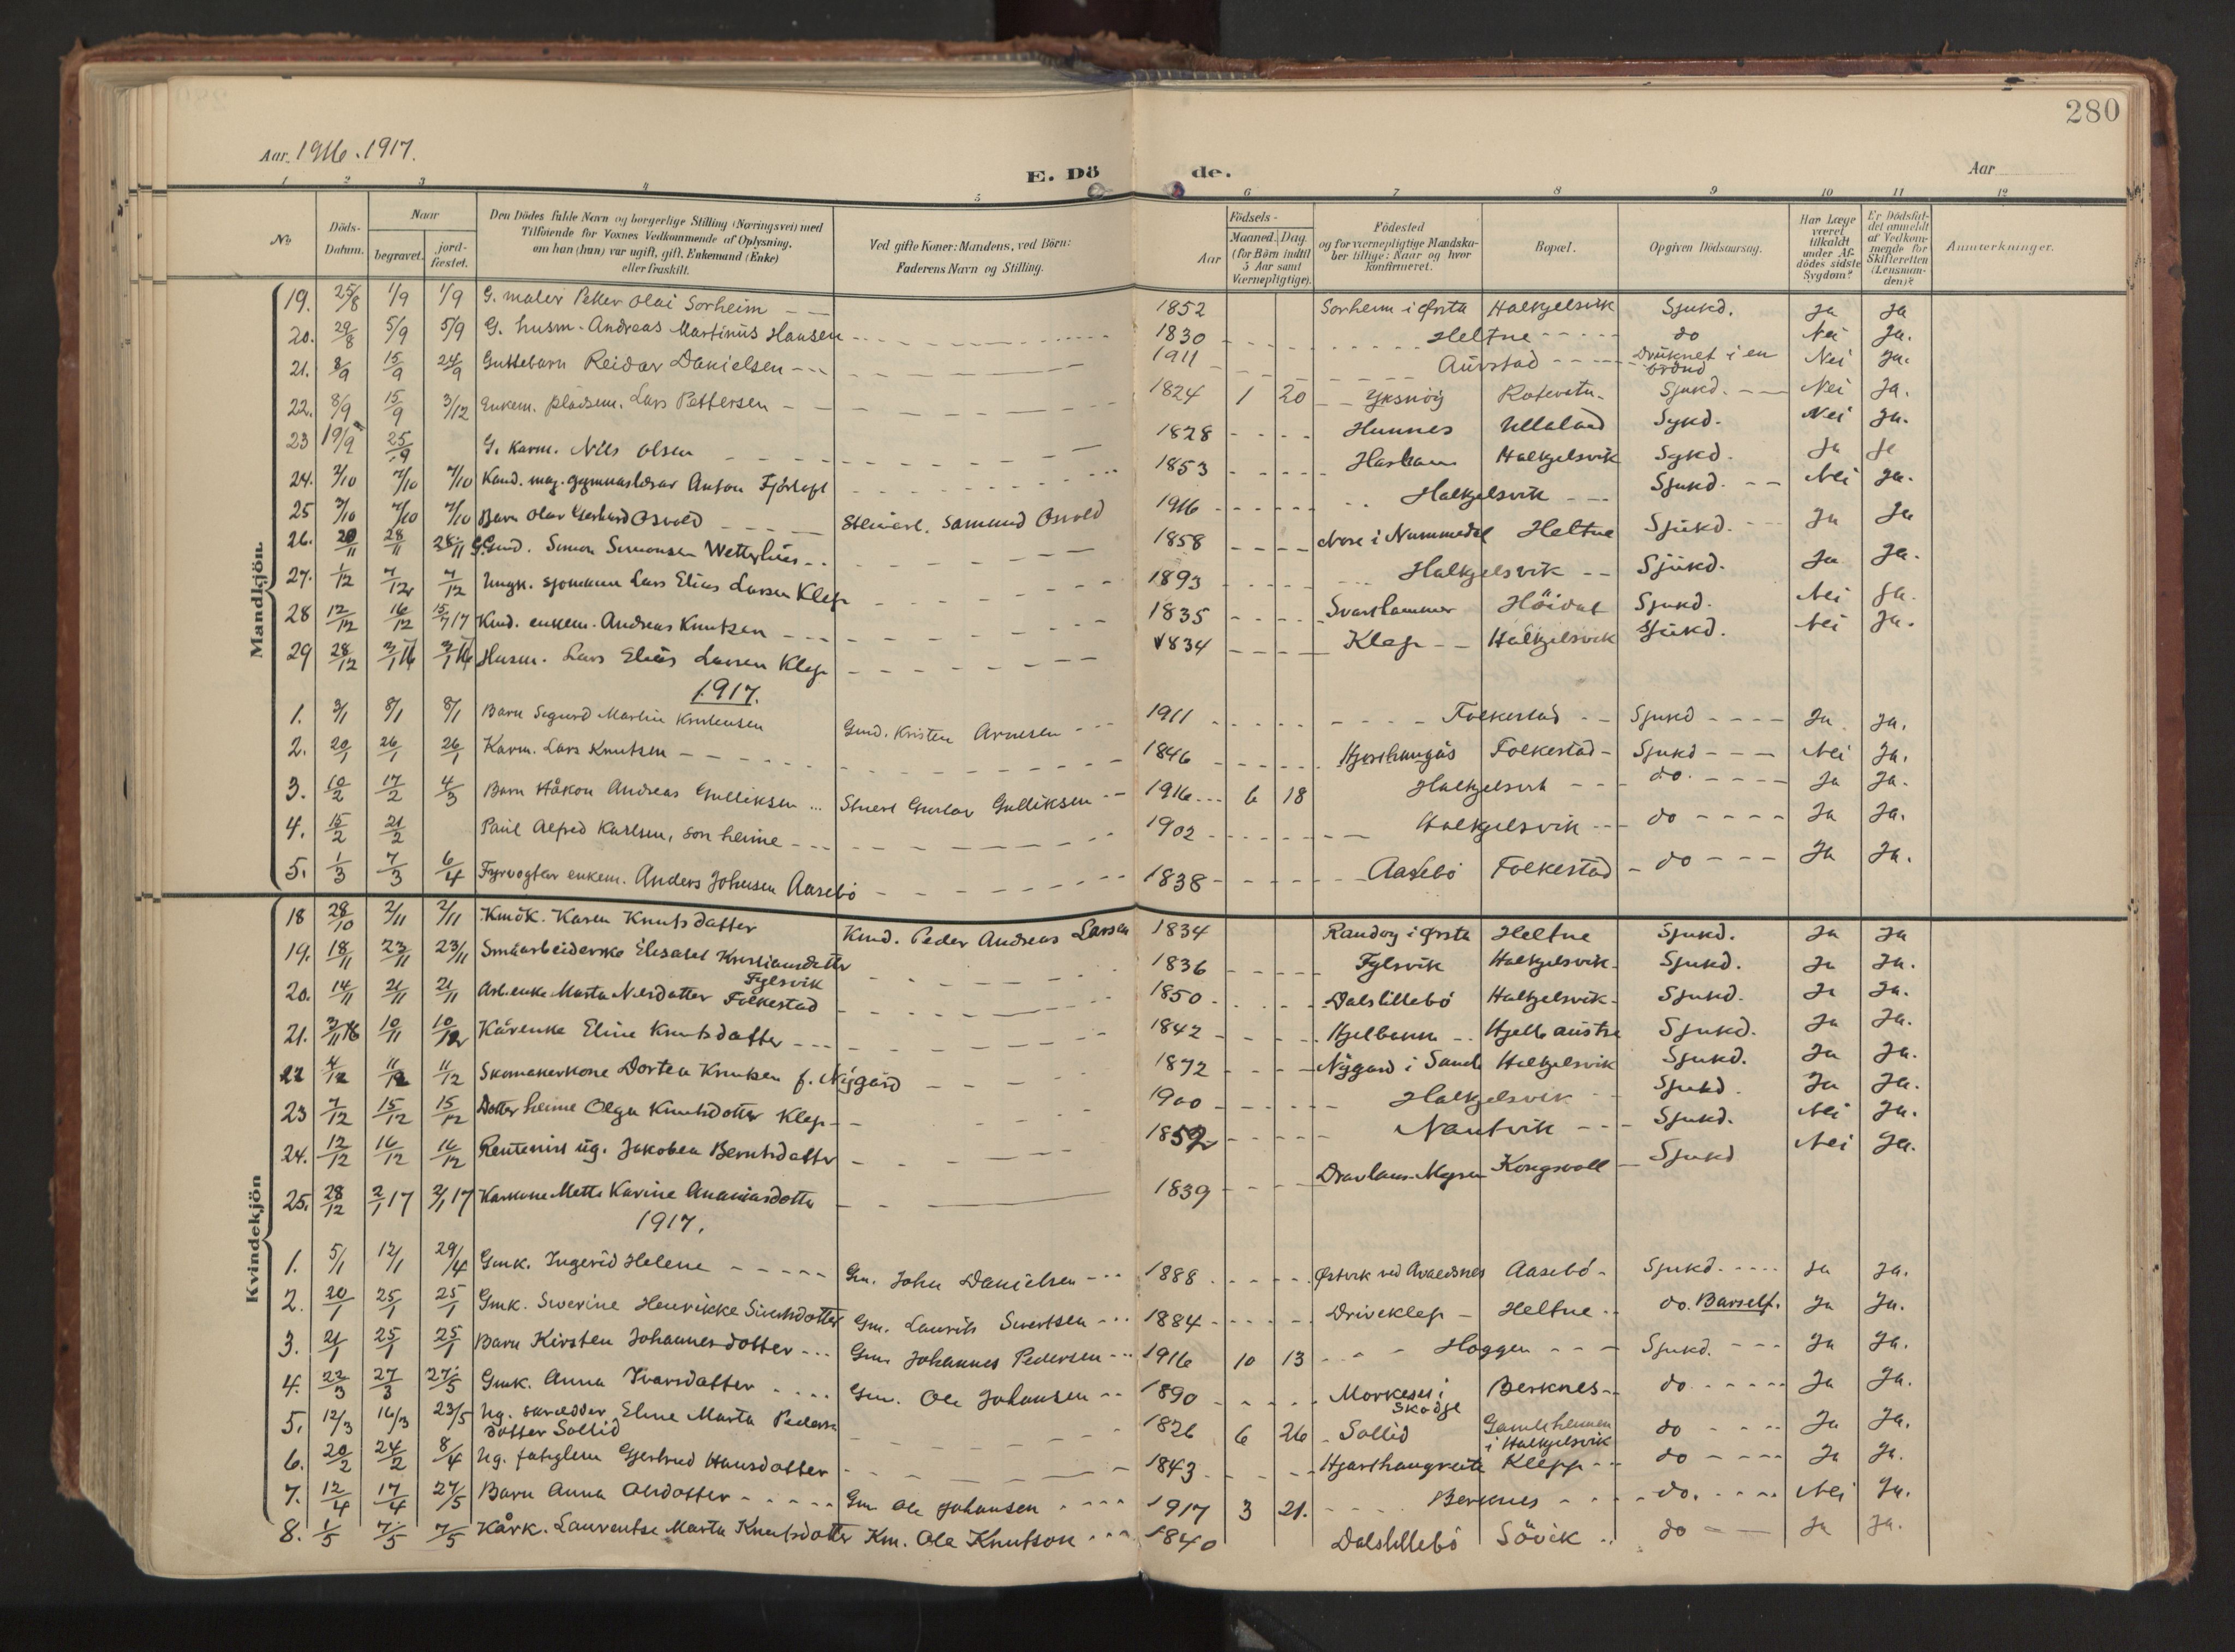 280
Aar 1916.1917.
E. Dö de.
Aar
1 2 3 4 5 6 7 8 9 10 11 12
No
Döds-Datum.
Naar
begravet.
jord-fæstet.
Den Dödes fulde Navn og borgerlige Stilling (Næringsvei) med Tilföiende for Voxnes Vedkommende af Oplysning, om han (hun) var ugift, gift, Enkemand (Enke) eller fraskilt.
Ved gifte Koner: Mandens, ved Börn: Faderens Navn og Stilling.
Aar
Födsels-
Maaned. Dag.
(for Börn indtil 5 Aar samt Værnepligtige).
Födested og for værnepligtige Mandskaber tillige: Naar og hvor Konfirmeret.
Bopæl.
Opgiven Dödsaarsag.
Har Læge været tilkaldt under Afdödes sidste Sygdom?
Er Dödsfaldet anmeldt af Vedkommende for Skifteretten (Lensmanden)?
Anmerkninger.
Mandkjön.
19. 25/8 1/9 1/9 G. maler Peter Olai Sorheim 1852 Sorheim i Ørsta Halkjelsvik Sjukd. Ja Ja
20. 29/8 5/9 5/9 G. husm. Andreas Martinus Hansen 1830 Heltne do Nei Ja.
21. 8/9 15/9 24/9 Guttebarn Reidar Danielsen 1911 Aurstad Druknet i en brønd Nei Ja.
22. 8/9 15/9 3/12 Enkem. pladsm. Lars Pettersen 1824 1 20 Yksnöy Sjukd. Nei Ja.
23 19/9 25/9 G. karm. Nils Olsen 1828 Hunnes Ulleland Sykd. Nei Ja.
24. 2/10 7/10 7/10 Kand. mag. gymnaslærar Anton Fjörtoft 1853 Harham Halkjelsvik Sykd. Ja Ja
25 3/10 7/10 7/10 Barn Olav Gerhard Osvold Samund Osvold 1916 Halkjelsvik Sjukd. Nei Ja.
26. 20/11 28/11 28/11 Gmd. Simon Simonsen Wetterhus 1858 Nore i Nummedal Heltne Sjukd. Ja Ja
27. 1/12 7/12 7/12 Ungk. sjömann Lars Elias Larsen Klep 1893 Halkjelsvik Sjukd. Ja Ja.
28 12/12 16/12 15/1 17 Kmd. enkem. Andreas Knutsen 1835 Svarthammer Höidal Sjukd. Nei Ja.
29 28/12 3/1 3/1 Husm. Lars Elias Larsen Klep 1834 Klep Halkjelsvik Sjukd. Nei Ja.
1917.
1. 3/1 8/1 8/1 Barn Sigurd Martin Kristensen Gmd. Kristen Arnesen 1911 Folkestad Sjukd Ja Ja.
2. 20/1 26/1 26/1 Karm. Lars Knutsen 1846 Folkestad Sjukd Nei Ja.
3. 10/2 17/2 4/3 Barn Håkon Andreas Gulliksen Gustav Gulliksen 1916 6 18 Halkjelsvik do. Ja Ja.
4. 15/2 21/2 Paul Alfred Karlsen, son heime 1902 Halkjelsvik do Ja Ja.
5. 1/3 7/3 6/4 Fyrvogtar enkem. Anders Johnsen Aasebö 1838 Aasebö Folkestad do Ja Ja.
Kvindekjön
18 28/10 2/11 2/11 Kmdk. Karen Knutsdatter Kmd. Peder Andreas Larsen 1834 Randøy i Ørsta Heltne Sjukd. Ja Ja
19. 18/11 23/11 23/11 Småarbeiderske Elisabet Kristiansdatter Fylsvik 1836 Fylsvik Halkjelsvik Sjukd. Ja Ja.
20. 14/11 21/11 21/11 Arb.enke Marta Nilsdatter Folkestad 1850 Dalslillebö Halkjelsvik Sjukd. Ja Ja.
21. 3/11 16 10/11 10/12 Kårenke Eline Knutsdatter 1842 Sjukd. Ja Ja.
22 4/12 11/12 11/12 Skomakerkone Dortea Knutsen f. Nygård 1872 Nygard i Sande Halkjelsvik Sjukd. Ja Ja.
23 7/12 15/12 15/12 Dotter heime Olga Knutsdotter Klep 1900 Halkjelsvik Sjukd. Ja Ja.
24. 12/12 16/12 16/12 Rentenist ug. Jakobea Berntsdatter 1852 Nautvik Sjukd. Nei Ja.
25. 28/12 2/1 17 2/1 17 Karkone Mette Karine Ananiasdotter 1839 Kongsvoll Sjukd Nei Ja.
1917.
1. 5/1 12/1 29/4 Gmk. Ingerid Helene Gm. John Danielsen 1888 Østvik ved Avaldsnes Aasebö Sjukd. Ja Ja.
2. 20/1 25/1 25/1 Gmk. Severine Henrikke Sivertsdotter Gm. Laurits Sivertsen 1884 Driveklep Heltne do. Barself. Ja Ja.
3. 21/1 25/1 25/1 Barn Kirsten Johannesdotter Gm. Johannes Pedersen 1916 10 13 Hoggen Sjukd. Ja Ja.
4. 22/3 27/3 27/5 Gmk. Anna Ivarsdatter Gm. Ole Johansen 1890 i Skodje Berknes do Ja Ja.
5. 12/3 16/3 23/5 Ug. Eline Marta Pedersdotter Sollid 1826 6 26 Sollid Gamleheimen i Halkjelsvik do Ja Ja.
6. 20/2 24/2 8/4 Ug. fatiglem Gjertrud Hansdotter 1843 Hjarthaugreite Klepp do Ja Ja.
7. 12/4 17/4 27/5 Barn Anna Olsdotter Gm Ole Johansen 1917 3 21. Berknes do. Nei Ja.
8. 1/5 7/5 7/5 Kårk. Laurentse Marta Knutsdotter Km. Ole Knutson 1840 Dalslillebö Sövik do Ja Ja.